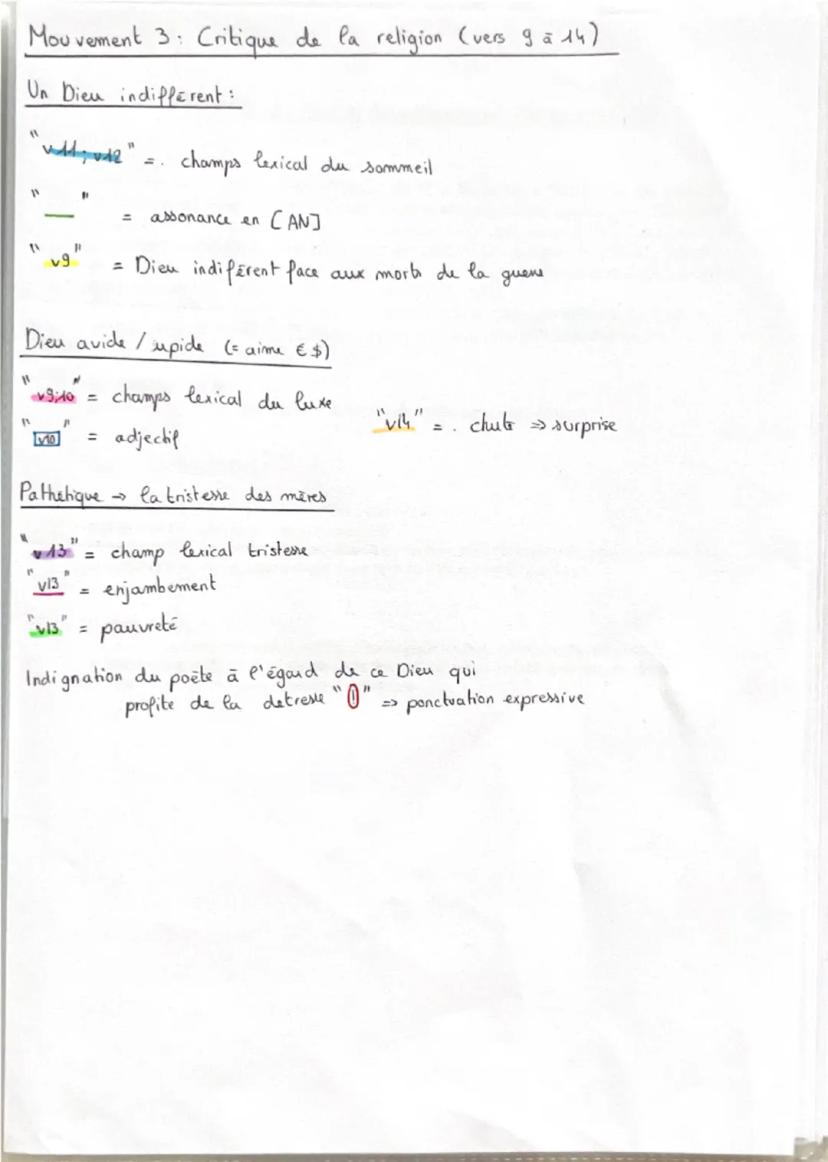 Mouvement 3 : Critique de la religion (vers 9 à 14)
Un Dieu indifférent :
"v11 ; v12" = . champs lexical du sommeil
" " = assonance en [AN]
"v9" = Dieu indiférent face aux morts de la guerre
Dieu avide / cupide (= aime € $)
"v9;10" = champs lexical du luxe
"v10" = adjectif
"v14" = . chute => surprise
Pathétique → la tristesse des mères
"v13" = champ lexical tristesse
"v13" = enjambement
"v13" = pauvreté
Indignation du poète à l'égard de ce Dieu qui
profite de la detresse "!" => ponctuation expressive